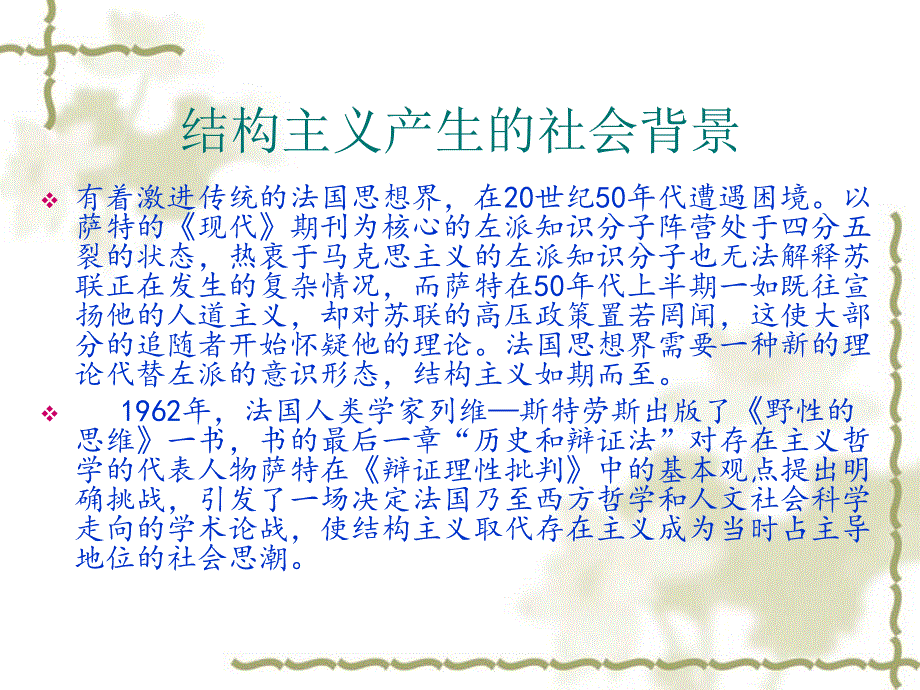 结构主义产生的社会背景
有着激进传统的法国思想界，在20世纪50年代遭遇困境。以
萨特的《现代》期刊为核心的左派知识分子阵营处于四分五
裂的状态，热衷于马克思主义的左派知识分子也无法解释苏
联正在发生的复杂情况，而萨特在50年代上半期一如既往宣
扬他的人道主义，却对苏联的高压政策置若罔闻，这使大部
分的追随者开始怀疑他的理论。法国思想界需要一种新的理
论代替左派的意识形态，结构主义如期而至。
1962年，法国人类学家列维—斯特劳斯出版了《野性的
思维》一书，书的最后一章“历史和辩证法”对存在主义哲
学的代表人物萨特在《辩证理性批判》中的基本观点提出明
确挑战，引发了一场决定法国乃至西方哲学和人文社会科学
走向的学术论战，使结构主义取代存在主义成为当时占主导
地位的社会思潮。